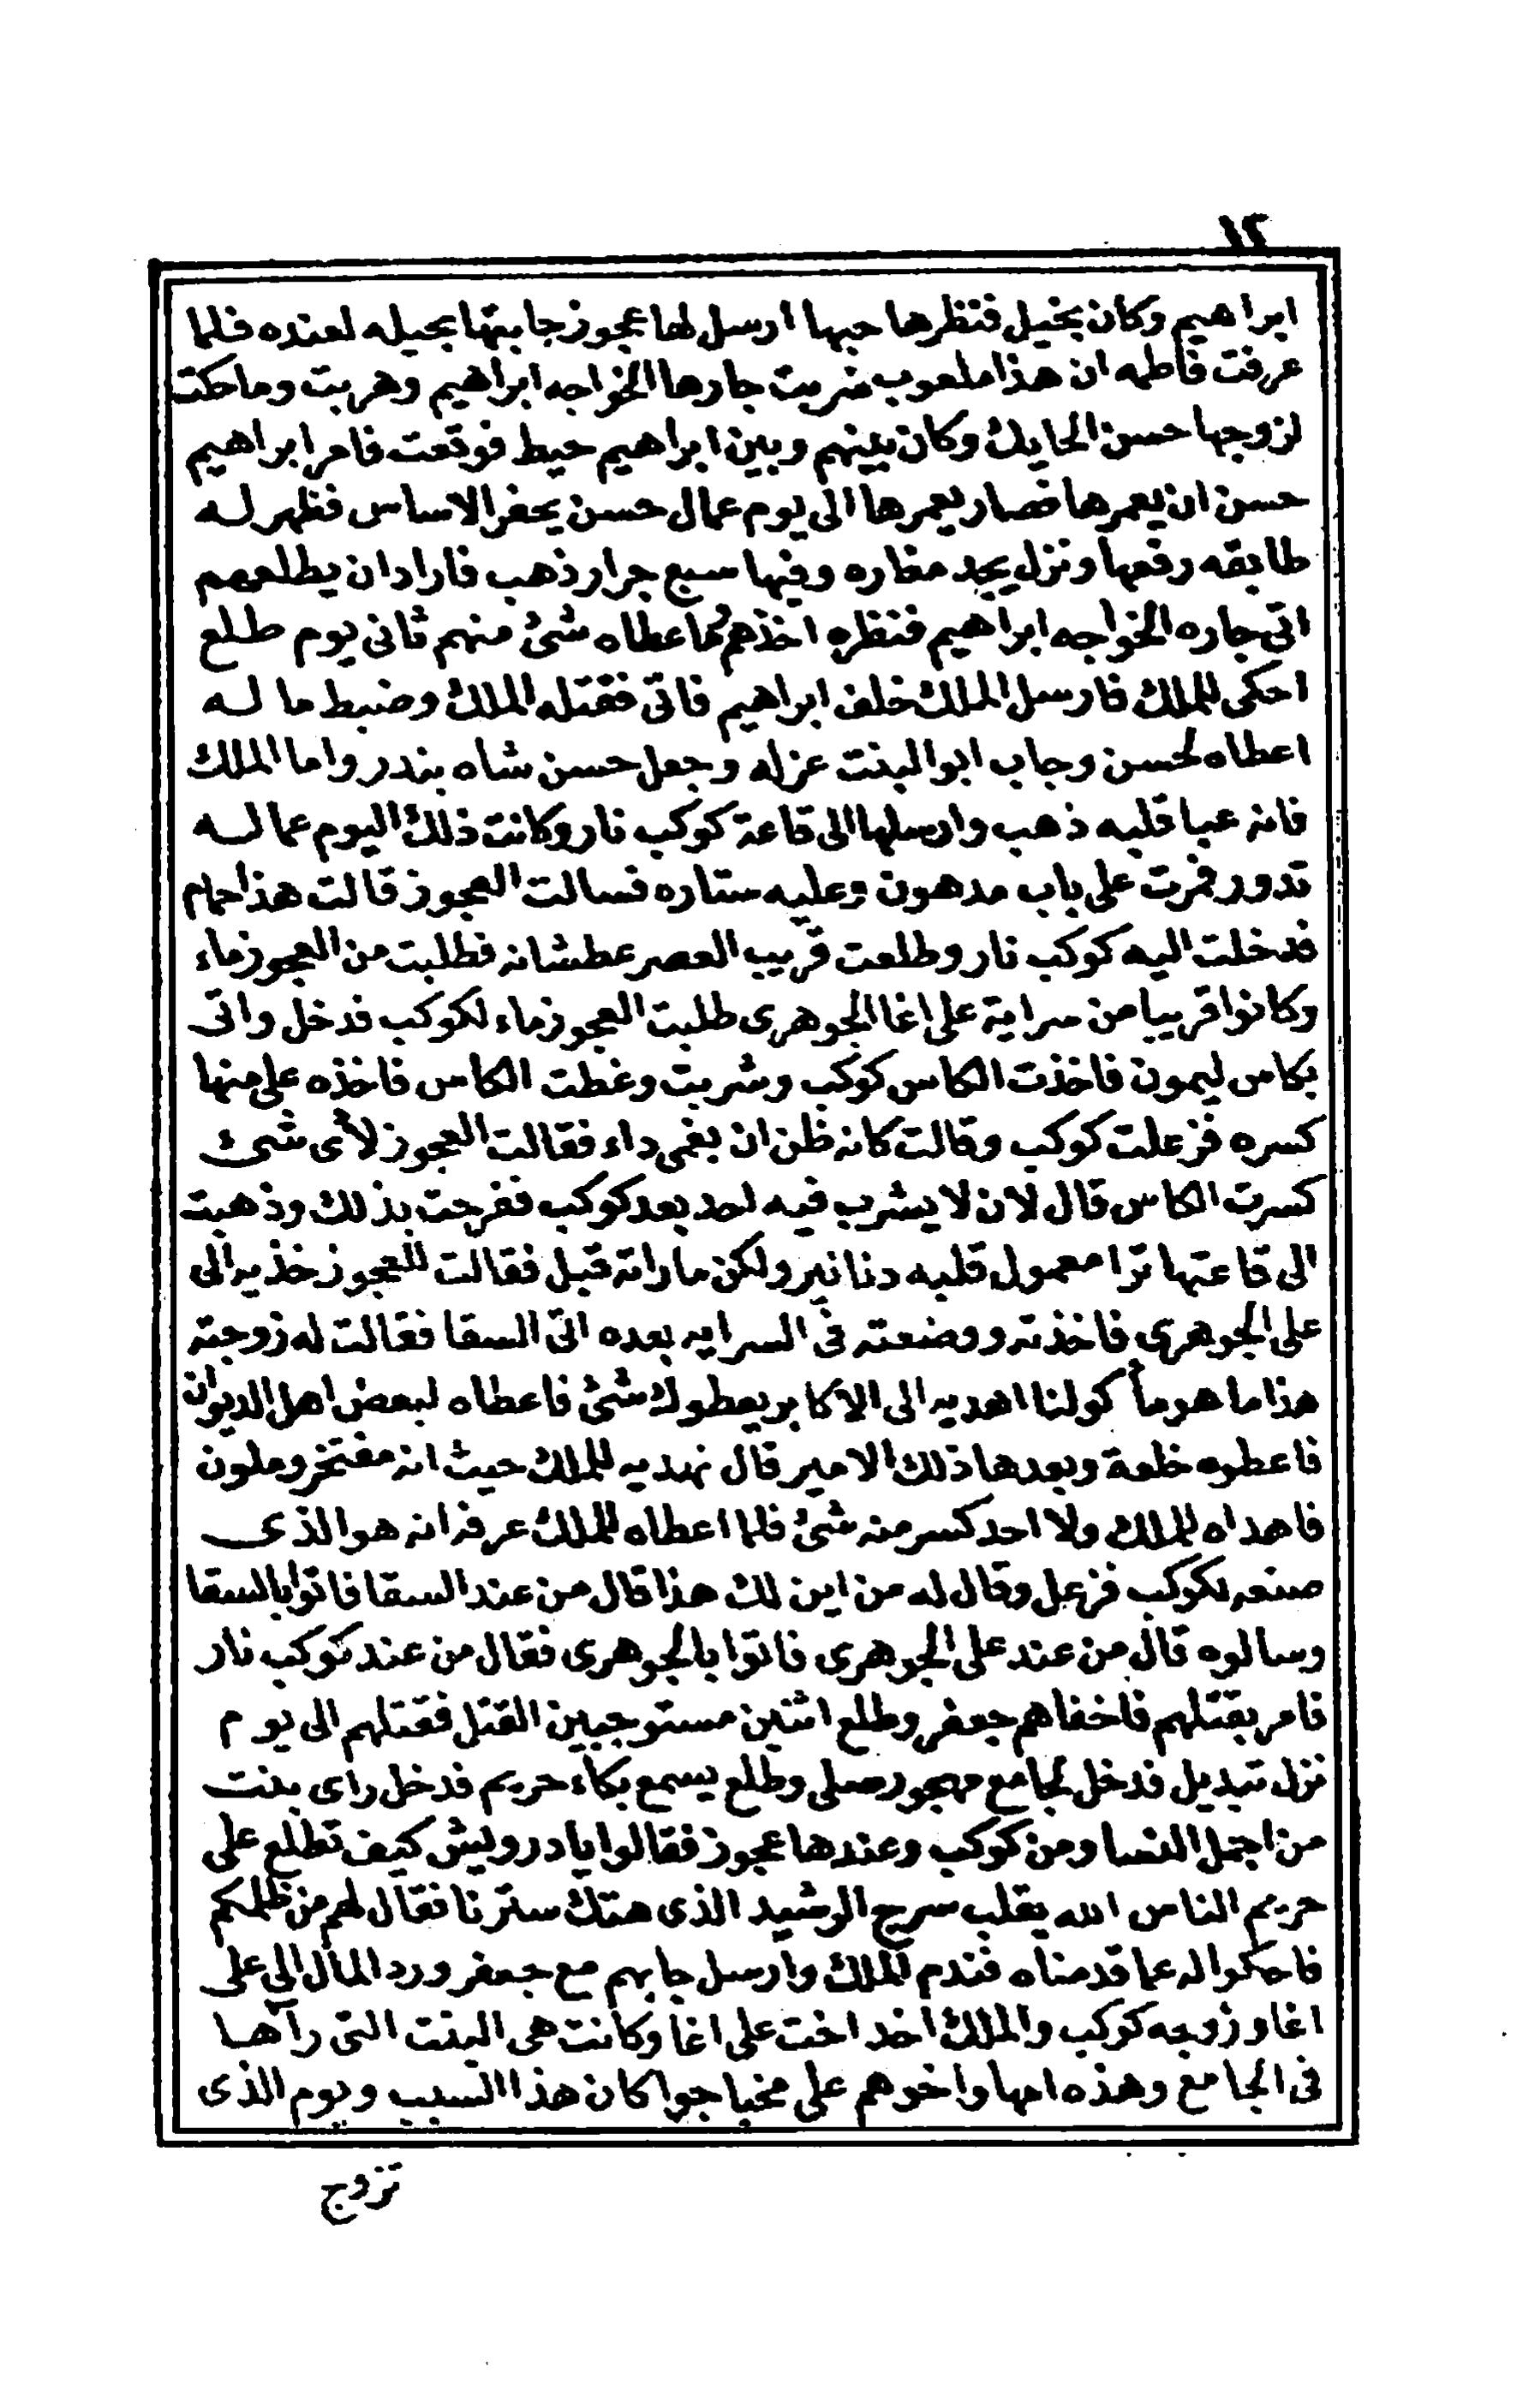 ١٢
ابراهيم وكان بخيل فنظرها حبها ارسل لها عجوز جابتها بحيله لعنده فلما
عرفت فاطمه ان هذا ملعوب ضربت جارها الخواجه ابراهيم وهربت وما حكت
لزوجها حسن الحايك وكان بينهم وبين ابراهيم حيط فوقعت فامر ابراهيم
حسن ان يعمرها فصار يعمرها الى يوم عمال حسن يحفر الاساس فظهر له
طابقه رفعها ونزل يجد مغاره وفيها سبع جرار ذهب فاراد ان يطلعهم
اتى جاره الخواجه ابراهيم فنظره اخذهم ما عطاه شئ منهم ثانى يوم طلع
احكى للملك فارسل الملك خلف ابراهيم فاتى فقتله الملك وضبط ما له
اعطاه لحسن وجاب ابو البنت عزله وجعل حسن شاه بندر واما الملك
فانه عبا قلبه ذهب وارسلها الى قاعة كوكب نار وكانت ذلك اليوم عماله
تدور فمرت على باب مدهون وعليه ستاره فسالت العجوز قالت هذا حمام
فدخلت اليه كوكب نار وطلعت قريب العصر عطشانه فطلبت من العجوز ماء
وكانوا قريبا من سراية على اغا الجوهرى طلبت العجوز ماء لكوكب فدخل واتى
بكاس ليمون فاخذت الكاس كوكب وشربت وغطت الكاس فاخذه على منها
كسره فزعلت كوكب وقالت كانه ظن ان بفمى داء فقالت العجوز لأى شئ
كسرت الكاس قال لان لا يشرب فيه احد بعد كوكب ففرحت بذلك وذهبت
الى قاعتها ترا معمول قلبه دنانير ولكن ما راته قبل فقالت للعجوز خذيه الى
على الجوهرى فاخذته ووضعته فى السرايه بعده اتى السقا فقالت له زوجته
هذا ما هو مأكولنا اهديه الى الاكابر يعطوك شئ فاعطاه لبعض اهل الديوان
فاعطوه خلعة وبعدها ذلك الامير قال نهديه للملك حيث انه مفتخر وملون
فاهداه للملك ولا احد كسر منه شئ فلما اعطاه للملك عرفه انه هو الذى
صنعه لكوكب فزعل وقال له من اين لك هذا قال من عند السقا فاتوا بالسقا
وسالوه قال من عند على الجوهرى فاتوا بالجوهرى فقال من عند كوكب نار
فامر بقتلهم فاخفاهم جعفر وطلع اثنين مستوجبين القتل فقتلهم الى يوم
نزل تبديل فدخل لجامع مهجور صلى وطلع يسمع بكاء حريم فدخل راى بنت
من اجمل النسا ومن كوكب وعندها عجوز فقالوا يا درويش كيف تطلع على
حريم الناس الله يقلب سرج الرشيد الذى هتك سترنا فقال لهم من ظلمكم
فاحكوا له عما قدمناه فندم الملك وارسل جابهم مع جعفر ورد المال الى على
اغا وزوجه كوكب والملك اخد اخت على اغا وكانت هى البنت التى رآها
فى الجامع وهذه امها واخوهم على مخبا جوا كان هذا السبب ويوم الذى
تزوج